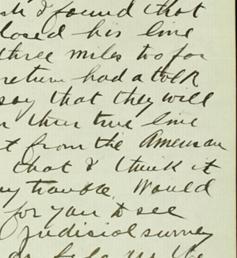 & found that
closed his line
three miles too far
return had a talk
say that they will
n their true line
t from the American
that & I think it
ny trouble. Would
for you to see
Judicial survey